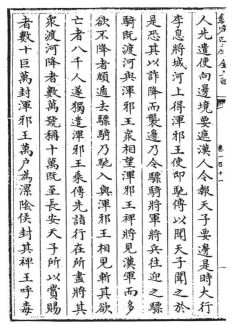 人先遣使向邊境要遮漢人令報天子要邊是時大行
李息將城河上得渾邪王使即馳傳以聞天子聞之於
是恐其以詐降而襲邊乃令驃騎將軍將兵往迎之驃
騎既渡河與渾邪王衆相望渾邪王裨將見漢軍而多
欲不降者頗遁去驃騎乃馳入與渾邪王相見斬其欲
亡者八千人遂獨遣渾邪王乘傳先詣行在所盡將其
衆渡河降者數萬號稱十萬既至長安天子所以賞賜
者數十巨萬封渾邪王萬户為漯陰侯封其裨王呼毒